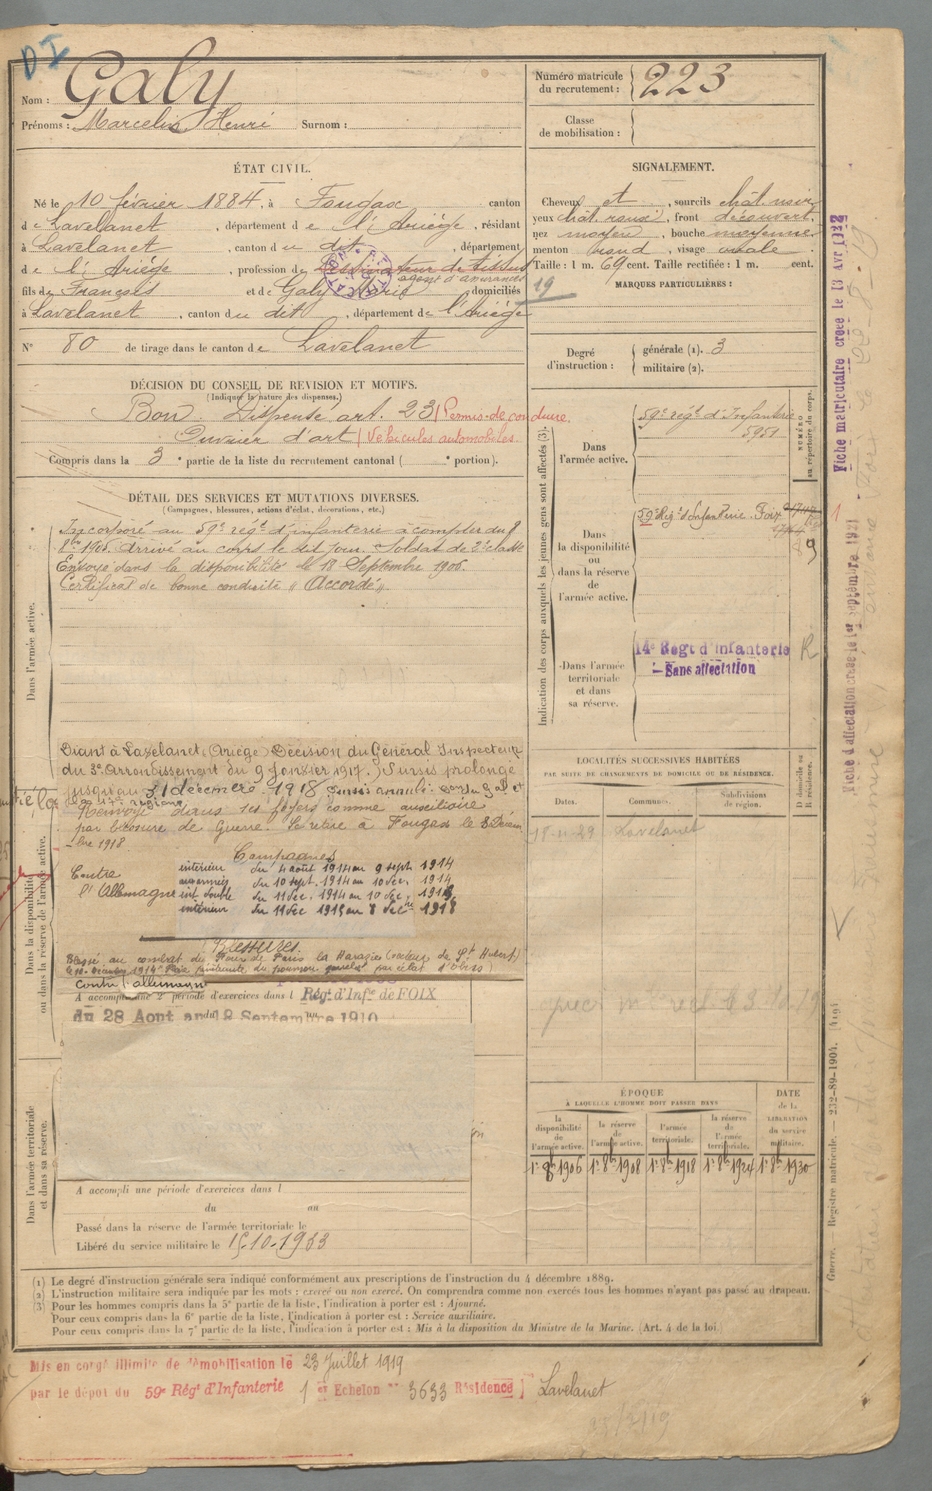 DI
Nom : Galy
Prénoms : Marcelin Henri Surnom :
Numéro matricule du recrutement : 223
Classe de mobilisation :
ÉTAT CIVIL.
Né le 10 février 1884, à Fougax canton
de Lavelanet, département de l'Ariège, résidant
à Lavelanet, canton du dit, département
de l'Ariège, profession de Dessinateur de tissus
agent d'assurances
fils de François et de Galy Marie domiciliés
à Lavelanet, canton du dit, département de l'Ariège
N° 80 de tirage dans le canton de Lavelanet
SIGNALEMENT.
Cheveux et, sourcils chât. noir
yeux chât. roux, front découvert.
nez moyen, bouche moyenne.
menton rond, visage ovale
Taille : 1 m. 69 cent. Taille rectifiée : 1 m. cent.
19
MARQUES PARTICULIÈRES :
Degré d'instruction : générale (1). 3
militaire (2).
DÉCISION DU CONSEIL DE REVISION ET MOTIFS.
(Indiquer la nature des dispenses.)
Bon. Dispensé art. 23 Permis de conduire.
Ouvrier d'art Véhicules automobiles.
Compris dans la 3e partie de la liste du recrutement cantonal ( e portion).
DÉTAIL DES SERVICES ET MUTATIONS DIVERSES.
(Campagnes, blessures, actions d'éclat, décorations, etc.)
Dans l'armée active.
Incorporé au 59e régt d'infanterie à compter du 8
8bre 1905. Arrivé au corps le dit jour. Soldat de 2e classe
Envoyé dans la disponibilité le 18 Septembre 1906.
Certificat de bonne conduite " Accordé "
Dans la disponibilité ou dans la réserve de l'armée active.
à Lavelanet (Ariège) Décision du Général Inspecteur
du 3e Arrondissement du 9 Janvier 1917. Sursis prolongé
jusqu'au 31 décembre 1918
Renvoyé dans ses foyers comme auxiliaire
par blessure de Guerre. Se retire à Fougax le 8 Décem
-bre 1918
Campagnes
Contre l'Allemagne
intérieur du 4 août 1914 au 9 sept. 1914
aux armées du 10 sept. 1914 au 10 déc. 1914
int. double du 11 déc. 1914 au 10 déc. 1915
intérieur du 11 déc 1915 au 8 déc 1918
Blessures
Blessé au combat du Four de Paris la Harazée (secteur de St Hubert)
Contre l'allemagne
A accompli une 2e période d'exercices dans l Régt d'Infie de FOIX
du 28 Aout au 9 Septembre 1910
Dans l'armée territoriale et dans sa réserve.
A accompli une période d'exercices dans l
du au
Passé dans la réserve de l'armée territoriale le
Libéré du service militaire le 15-10-1933
Indication des corps auxquels les jeunes gens sont affectés (3).
NUMÉRO au répertoire du corps.
Dans l'armée active.
59e régt d'Infanterie
5951
Dans la disponibilité ou dans la réserve de l'armée active.
59e Rég't d'Infanterie. Foix
Dans l'armée territoriale et dans sa réserve.
14e Régt d'infanterie R
- Sans affectation
LOCALITÉS SUCCESSIVES HABITÉES
PAR SUITE DE CHANGEMENTS DE DOMICILE OU DE RÉSIDENCE.
Dates. Communes. Subdivisions de région. D domicile ou R résidence.
15-11-29 Lavelanet
ÉPOQUE
À LAQUELLE L'HOMME DOIT PASSER DANS
DATE de la LIBÉRATION du service militaire.
la disponibilité de l'armée active.
la réserve de l'armée active.
l'armée territoriale.
la réserve de l'armée territoriale.
1er 8bre 1906 1er 8bre 1908 1er 8bre 1918 1er 8bre 1924 1er 8bre 1930
(1) Le degré d'instruction générale sera indiqué conformément aux prescriptions de l'instruction du 4 décembre 1889.
(2) L'instruction militaire sera indiquée par les mots : exercé ou non exercé. On comprendra comme non exercés tous les hommes n'ayant pas passé au drapeau.
(3) Pour les hommes compris dans la 5e partie de la liste, l'indication à porter est : Ajourné.
Pour ceux compris dans la 6e partie de la liste, l'indication à porter est : Service auxiliaire.
Pour ceux compris dans la 7e partie de la liste, l'indication à porter est : Mis à la disposition du Ministre de la Marine. (Art. 4 de la loi.)
Mis en congé illimité de démobilisation le 23 Juillet 1919
par le dépot du 59e Régt d'Infanterie 1 er Echelon N° 3633 Résidence Lavelanet
Fiche matriculaire créée le 13 Avr 1922
Fiche d'affectation créée le 1er septembre 1921
Guerre. — Registre matricule. — 232-89-1904. [419]